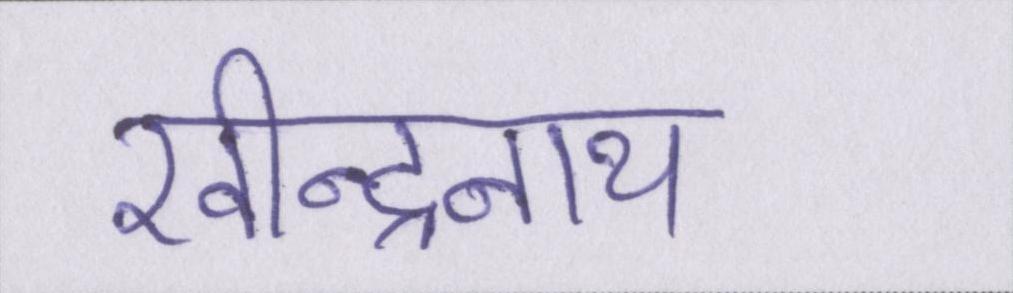 रवीन्द्रनाथ